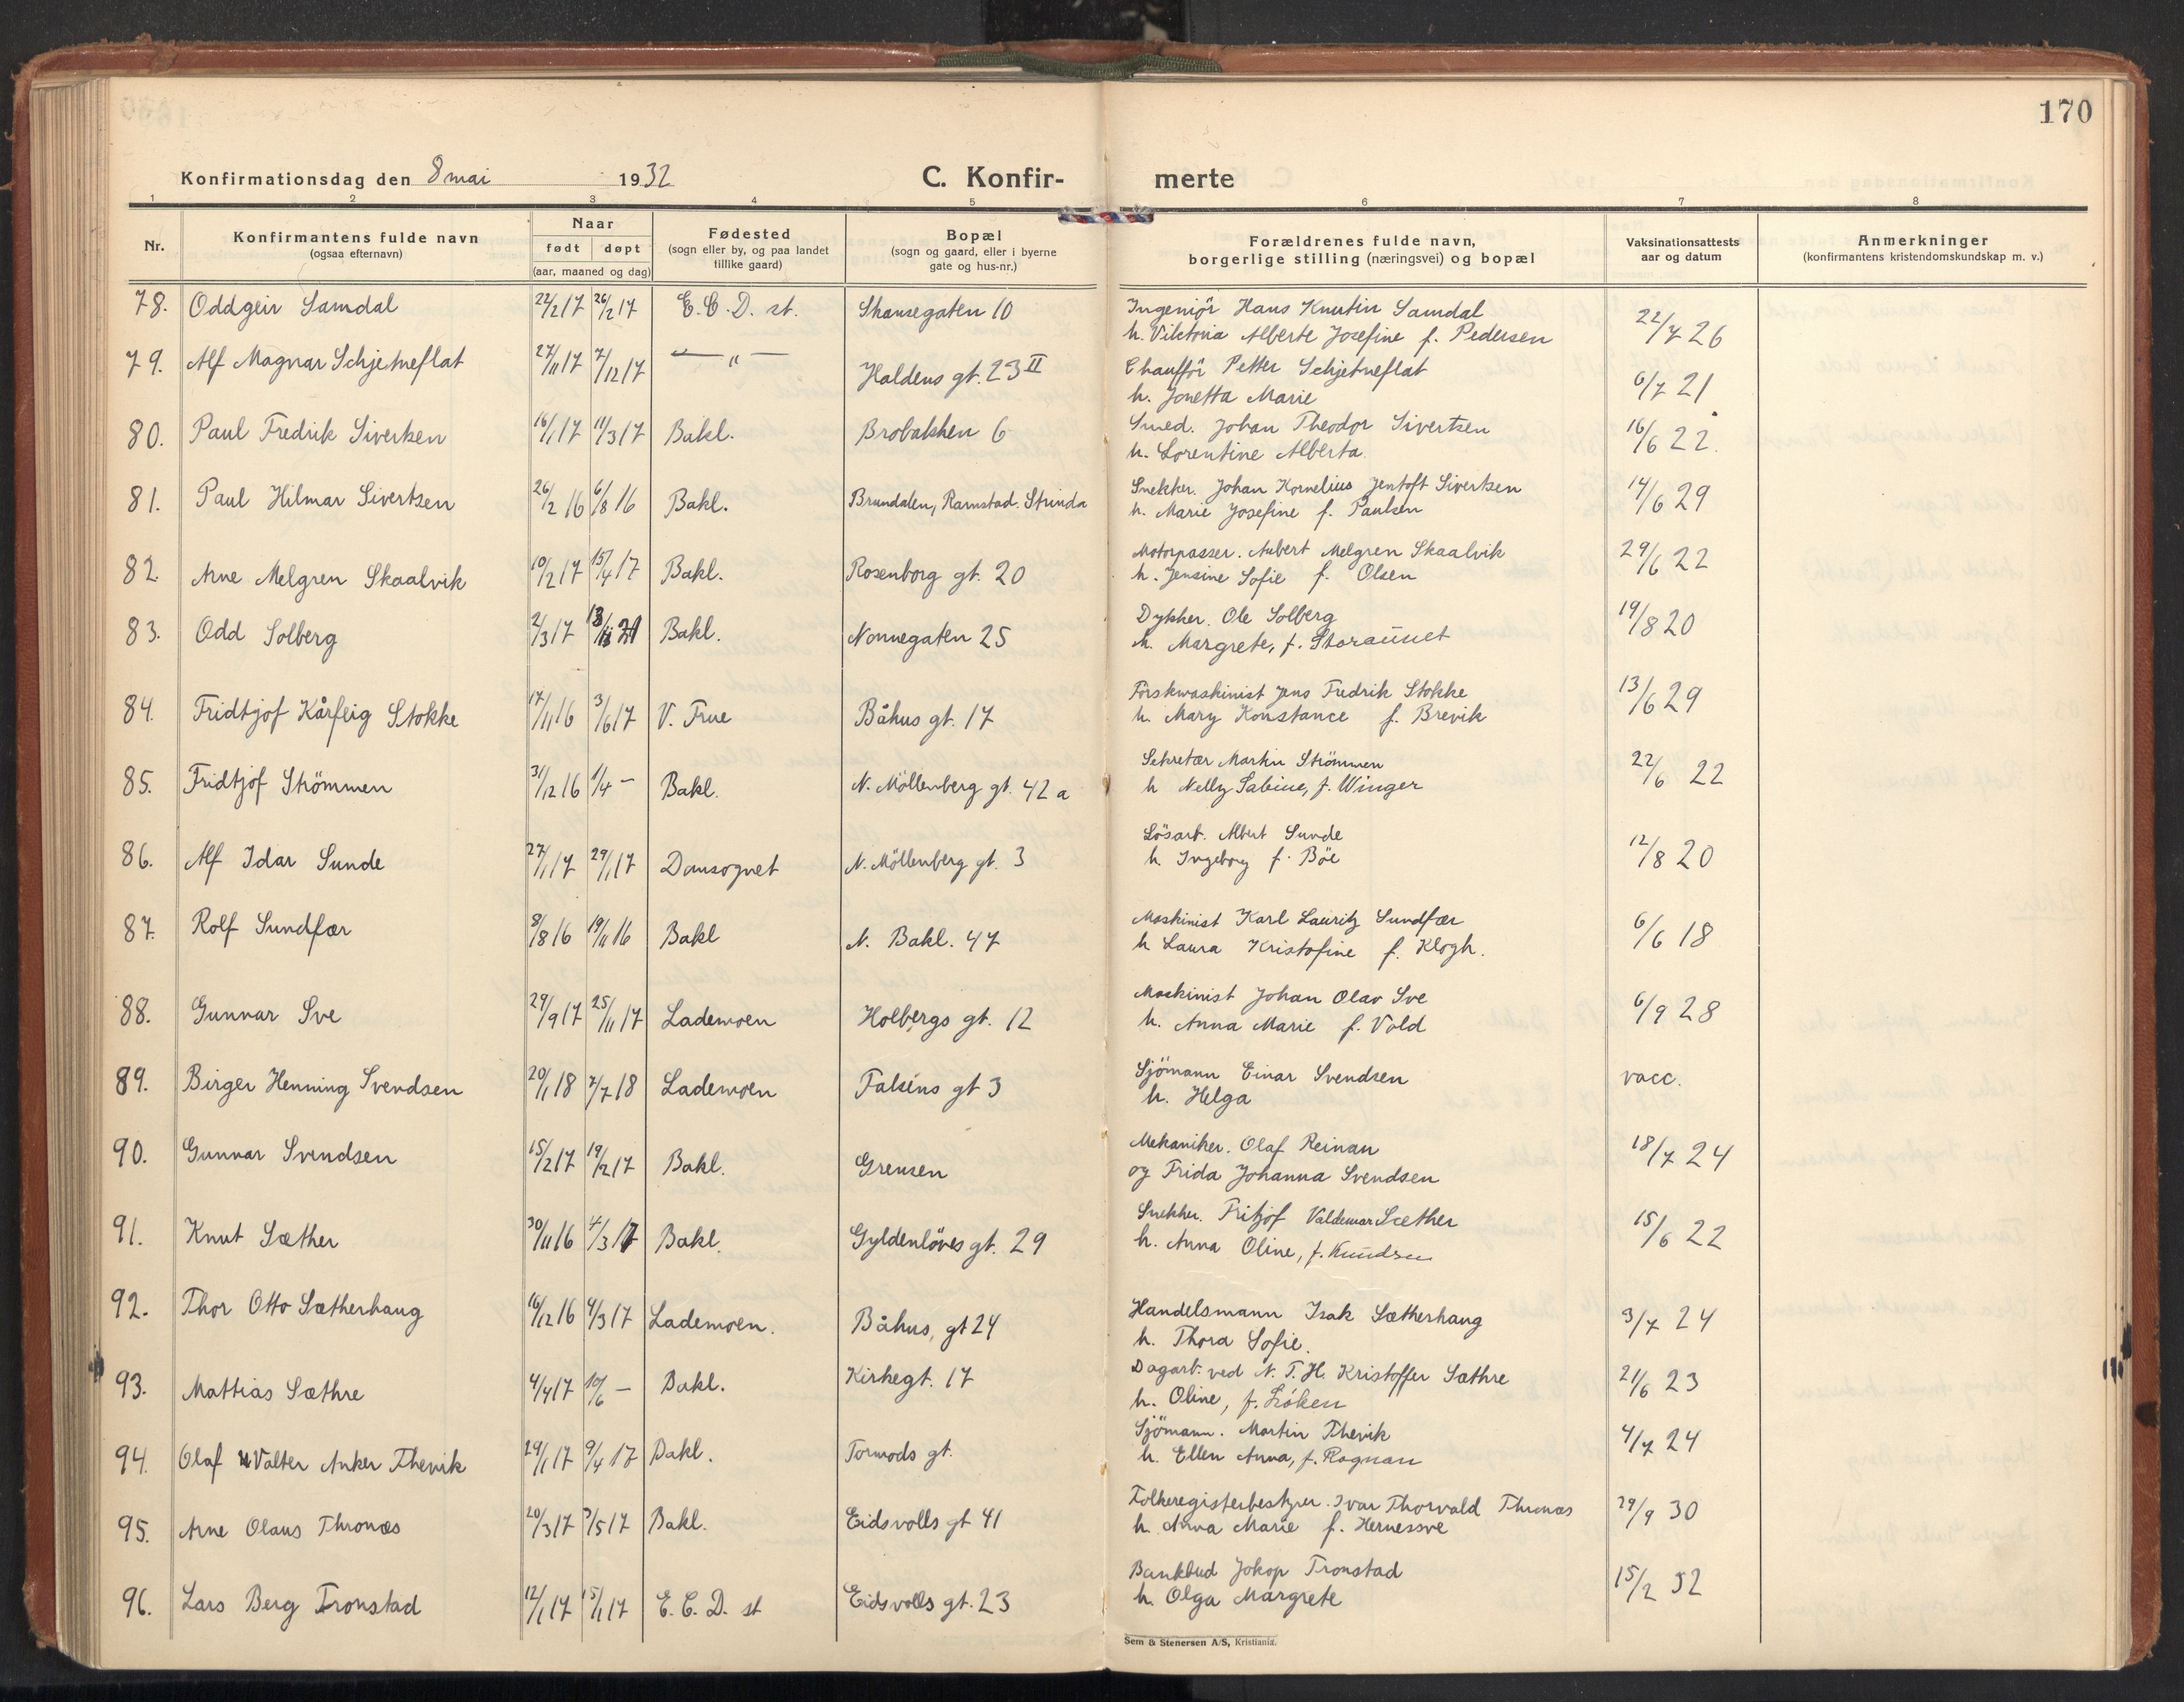 170
Konfirmationsdag den 8 mai 1932 C. Konfir- merte
1 2 3 4 5 6 7 8
Nr. Konfirmantens fulde navn (ogsaa efternavn) Naar født døpt (aar, maaned og dag) Fødested (sogn eller by, og paa landet tillike gaard) Bopæl (sogn og gaard, eller i byerne gate og hus-nr.) Forældrenes fulde navn, borgerlige stilling (næringsvei) og bopæl Vaksinationsattests aar og datum Anmerkninger (konfirmantens kristendomskundskap m. v.)
78. Oddgeir Samdal 22/2 17 26/2 17 E. C. D. st. Skansegaten 10 Ingeniör Hans Knutin Samdal
h. Viktoria Alberte Josefine f. Pedersen 22/7 26
79. Alf Magnar Schjetneflat 27/11 17 7/12 17 — " — Haldens gt. 23 II Chaufför Petter Schjetneflat
h. Jonetta Marie 6/7 21
80. Paul Fredrik Sivertsen 16/1 17 11/3 17 Bakl. Brobakken 6 Smed. Johan Theodor Sivertsen
h. Lorentine Alberta. 16/6 22.
81. Paul Hilmar Sivertsen 26/2 16 6/8 16 Bakl. Brundalen, Ramstad. Strinda Snekker. Johan Kornelius Jentoft Sivertsen
h. Marie Josefine f. Paulsen 14/6 29
82. Arne Melgren Skaalvik 10/2 17 15/4 17 Bakl. Rosenborg gt. 20 Motorpasser. Anbert Melgren Skaalvik
h. Jensine Sofie f. Olsen 29/6 22
83. Odd Solberg 2/3 17 Bakl. Nonnegaten 25 Dykker. Ole Solberg
h. Margrete, f. Storaunet 19/8 20
84. Fridtjof Kårfeig Stokke 17/11 16 3/6 17 V. Frue Båhus gt. 17 Förskmaskinist Jens Fredrik Stokke
h. Mary Konstance f. Brevik 13/6 29
85. Fridtjof Strömmen 31/12 16 1/4 — Bakl. N. Möllenberg gt. 42 a Sekretær Martin Strömmen
h Nelly Sabine, f. Winger 22/6 22
86. Alf Idar Sunde 27/1 17 29/1 17 Domsognet N. Möllenberg gt. 3 Lösarb. Albert Sunde
h Ingeborg f. Böe 12/8 20
87. Rolf Sundfær 8/8 16 19/11 16 Bakl N. Bakl. 47 Maskinist Karl Lauritz Sundfær
h Laura Kristofine f. Klogh. 6/6 18
88. Gunnar Sve 29/9 17 25/11 17 Lademoen Holbergs gt. 12 Maskinist Johan Olav Sve
h. Anna Marie f. Vold 6/9 28
89. Birger Henning Svendsen 20/1 18 7/7 18 Lademoen Falséns gt 3 Sjömann Einar Svendsen
h. Helga vacc.
90. Gunnar Svendsen 15/2 17 19/2 17 Bakl. Grensen Mekaniker. Olaf Reinan
og Frida Johanna Svendsen 18/7 24
91. Knut Sæther 30/11 16 4/3 17 Bakl. Gyldenlöves gt. 29 Snekker. Fritjof Valdemar Sæther
h. Anna Oline, f. Knudsen 15/6 22
92. Thor Otto Sætherhaug 16/12 16 4/3 17 Lademoen. Båhus, gt 24 Handelsmann Isak Sætherhaug
h. Thora Sofie. 3/7 24
93. Mattias Sæthre 4/4 17 10/6 — Bakl. Kirkegt. 17 Dagarb. ved N. T. H. Kristoffer Sæthre
h. Oline, f. Löken 21/6 23
94. Olaf Valter Anker Thevik 29/1 17 9/4 17 Bakl. Tormods gt. Sjömann. Martin Thevik
h. Ellen Anna, f. Rognan 4/7 24
95. Arne Olaus Thronæs 20/3 17 7/5 17 Bakl. Eidsvolls gt 41 Folkeregisterbestyrer. Ivar Thorvald Thronæs
h. Anna Marie f. Hernessve 29/9 30
96. Lars Berg Tronstad 12/1 17 15/1 17 E. C. D. st Eidsvolls gt. 23 Bankbud Jokop Tronstad
h. Olga Margrete 15/2 32
Sem & Stenersen A/S, Kristiania.